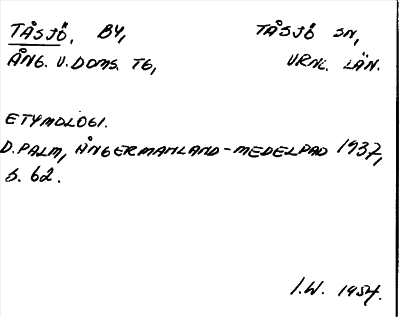 TÅSJÖ, BY, TÅSJÖ SN,
ÅNG. V. DOMS. TG, VRNL. LÄN.
ETYMOLOGI.
D. PALM, ÅNGERMANLAND-MEDELPAD 1937,
S. 62.
I.W. 1954.